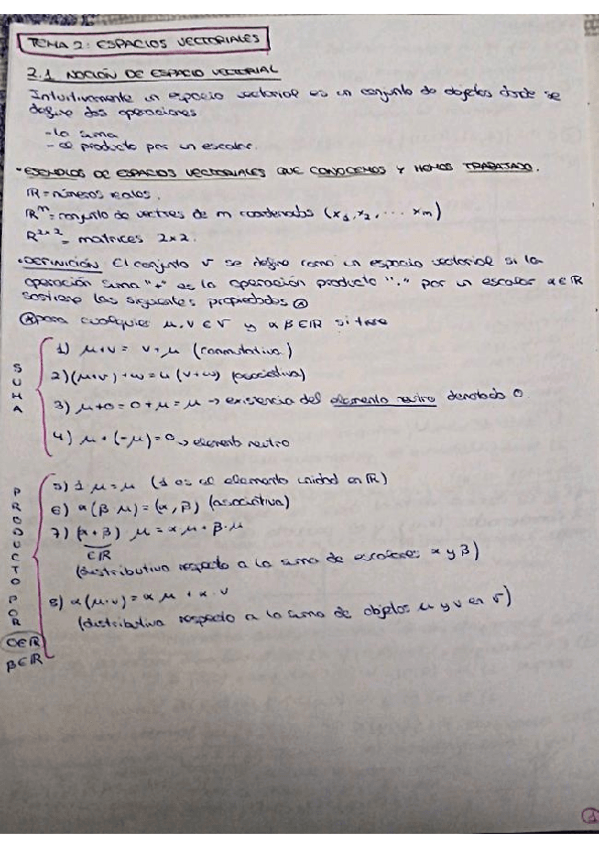 TEMA 2: ESPACIOS VECTORIALES
2.1 NOCIÓN DE ESPACIO VECTORIAL
Intuitivamente un espacio vectorial es un conjunto de objetos donde se
define dos operaciones
- la suma
- el producto por un escalar.
• EJEMPLOS DE ESPACIOS VECTORIALES QUE CONOCEMOS Y HEMOS TRABAJADO.
ℝ = números reales.
ℝᵐ = conjunto de vectores de m coordenadas (x₁, x₂, ... xₘ)
ℝ²ˣ² = matrices 2x2.
• DEFINICIÓN El conjunto V se define como un espacio vectorial si la
operación suma "+" es la operación producto "." por un escalar α∈ℝ
las siguientes propiedades Ⓐ
Ⓐ para cualquier μ, v ∈ V y α β ∈ ℝ si
SUMA
1) μ+v = v+μ (conmutativa)
2) (μ+v)+w = u(v+w) (asociativa)
3) μ+0 = 0+μ = μ → existencia del elemento neutro denotado 0
4) μ+(-μ) = 0 → elemento neutro
PRODUCTO POR
α∈ℝ
β∈ℝ
5) 1·μ = μ (1 es el elemento unidad en ℝ)
6) α(β·μ) = (α, β) (asociativa)
7) (α+β) μ = α μ + β·μ
∈ℝ
(distributiva respecto a la suma de escalares α y β)
8) α(μ+v) = α μ + α·v
(distributiva respecto a la suma de objetos μ y v en V)
1